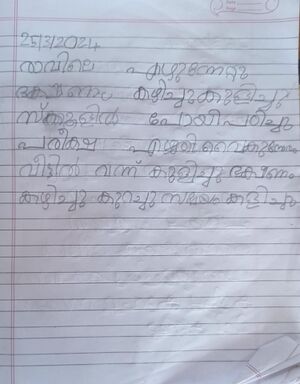 25/3/2024
രാവിലെ എഴുന്നേറ്റു
ഭക്ഷണം കഴിച്ചു കുളിച്ചു
സ്കൂളിൽ പോയി പഠിച്ചു
പരീക്ഷ എഴുതി വൈകുന്നേരം
വീട്ടിൽ വന്ന് കുളിച്ചു ഭക്ഷണം
കഴിച്ചു കുറച്ചു സമയം കളിച്ചു